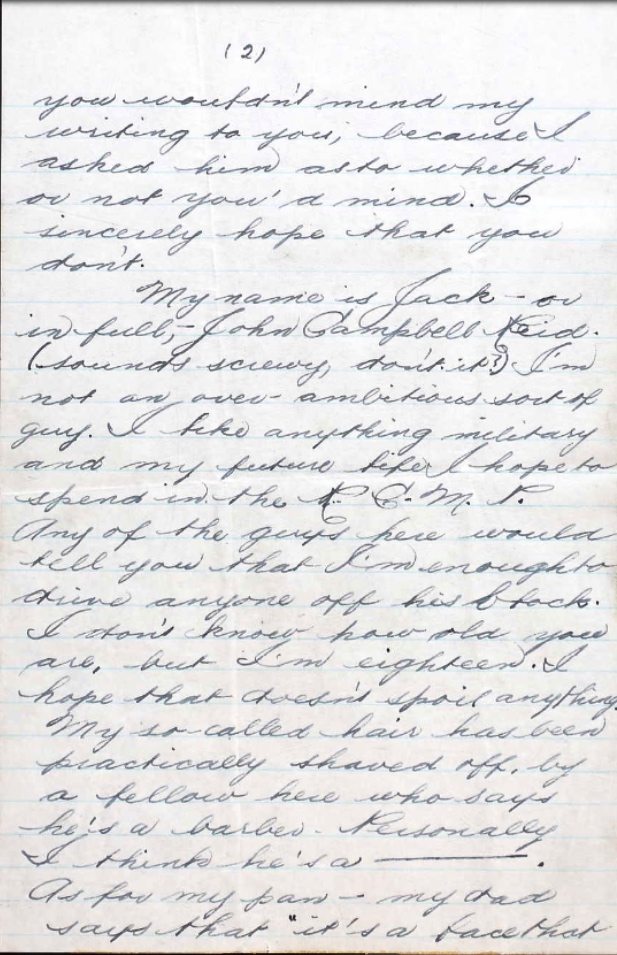 (2)
you wouldn't mind my
writing to you, because I
asked him as to whether
or not you'd mind. I
sincerely hope that you
don't.
My name is Jack - or
in full, - John Campbell Reid.
(sounds screwy, don't it?) I'm
not an over-ambitious sort of
guy. I like anything military
and my future life I hope to
spend in the R. C. M. P.
Any of the guys here would
tell you that I'm enough to
drive anyone off his block.
I don't know how old you
are, but I'm eighteen. I
hope that doesn't spoil anything.
My so-called hair has been
practically shaved off, by
a fellow here who says
he's a barber. Personally
I think he's a ———.
As for my pan - my dad
says that "it's a face that